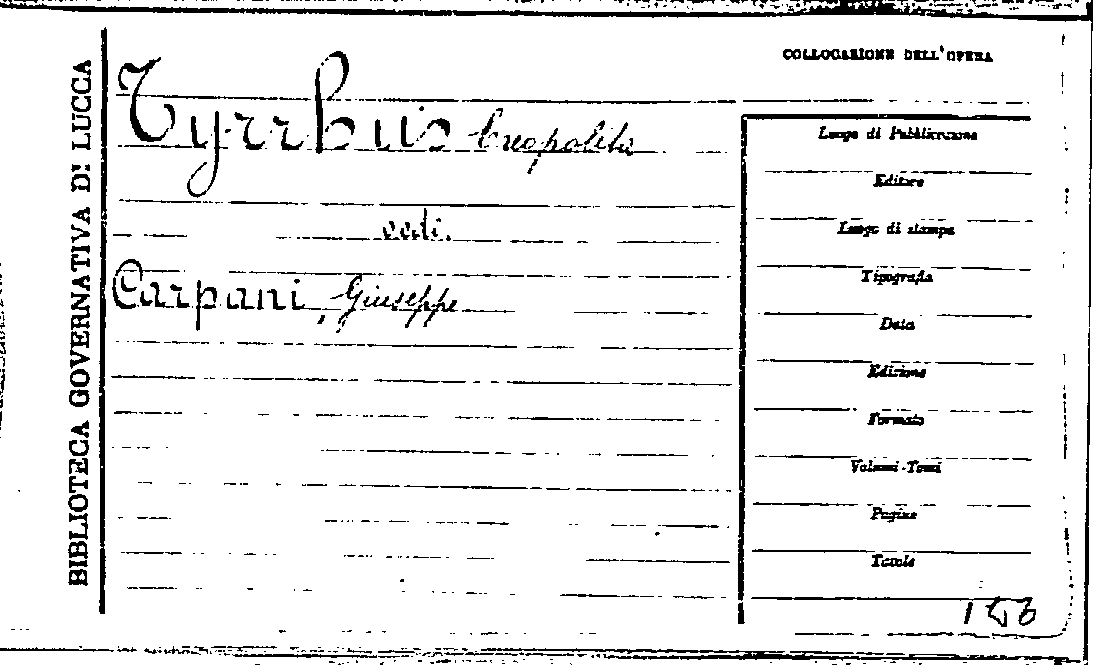 BIBLIOTECA GOVERNATIVA DI LUCCA
COLLOCAZIONE DELL'OPERA
Tyrrhus Creopolita
vedi.
Carpani, Giuseppe
Luogo di Pubblicazione
Editore
Luogo di stampa
Tipografia
Data
Edizione
Formato
Volumi-Tomi
Pagine
Tavole